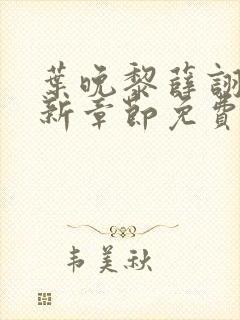 葉晚黎薛詡
新章節免費
韦美秋